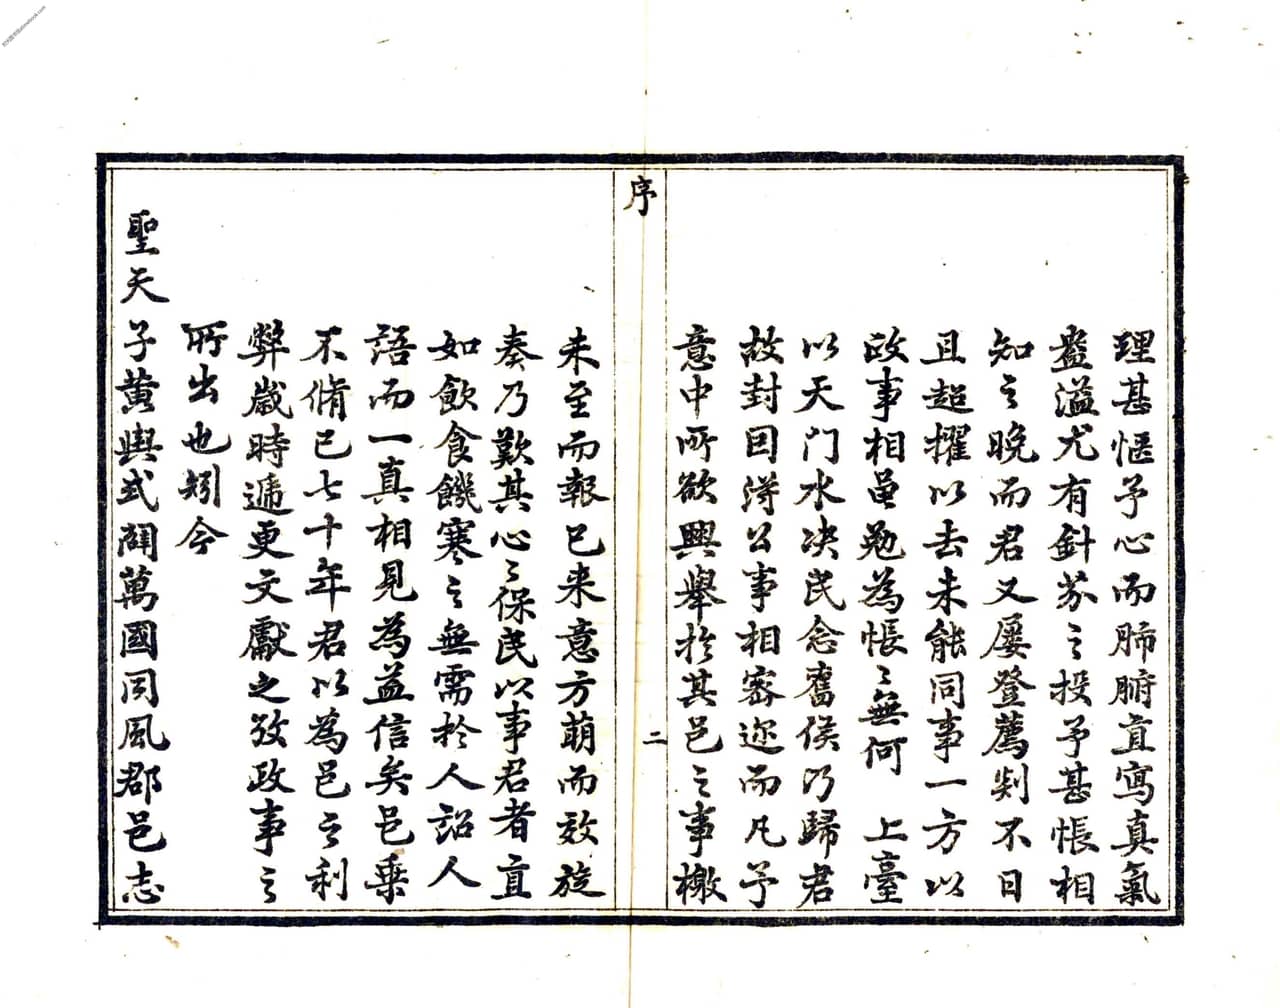 理甚愜予心而肺腑直寫真氣
盎溢尤有針芥之投予甚悵相
知之晚而君又屢登薦剡不日
且超擢以去未能同事一方以
政事相黽勉為悵〻無何 上臺
以天門水決民念舊侯乃歸君
故封因淂公事相密迩而凡予
意中所欲興舉扵其邑之事檄
序
二
未至而報已来意方萌而效旋
奏乃歎其心〻保民以事君者直
如飲食饑寒之無需扵人詔人
語而一真相見為益信矣邑乗
不脩已七十年君以為邑之利
弊歲時遞更文獻之攷政事之
所出也矧今
聖天子黄輿式闢萬國同風郡邑志